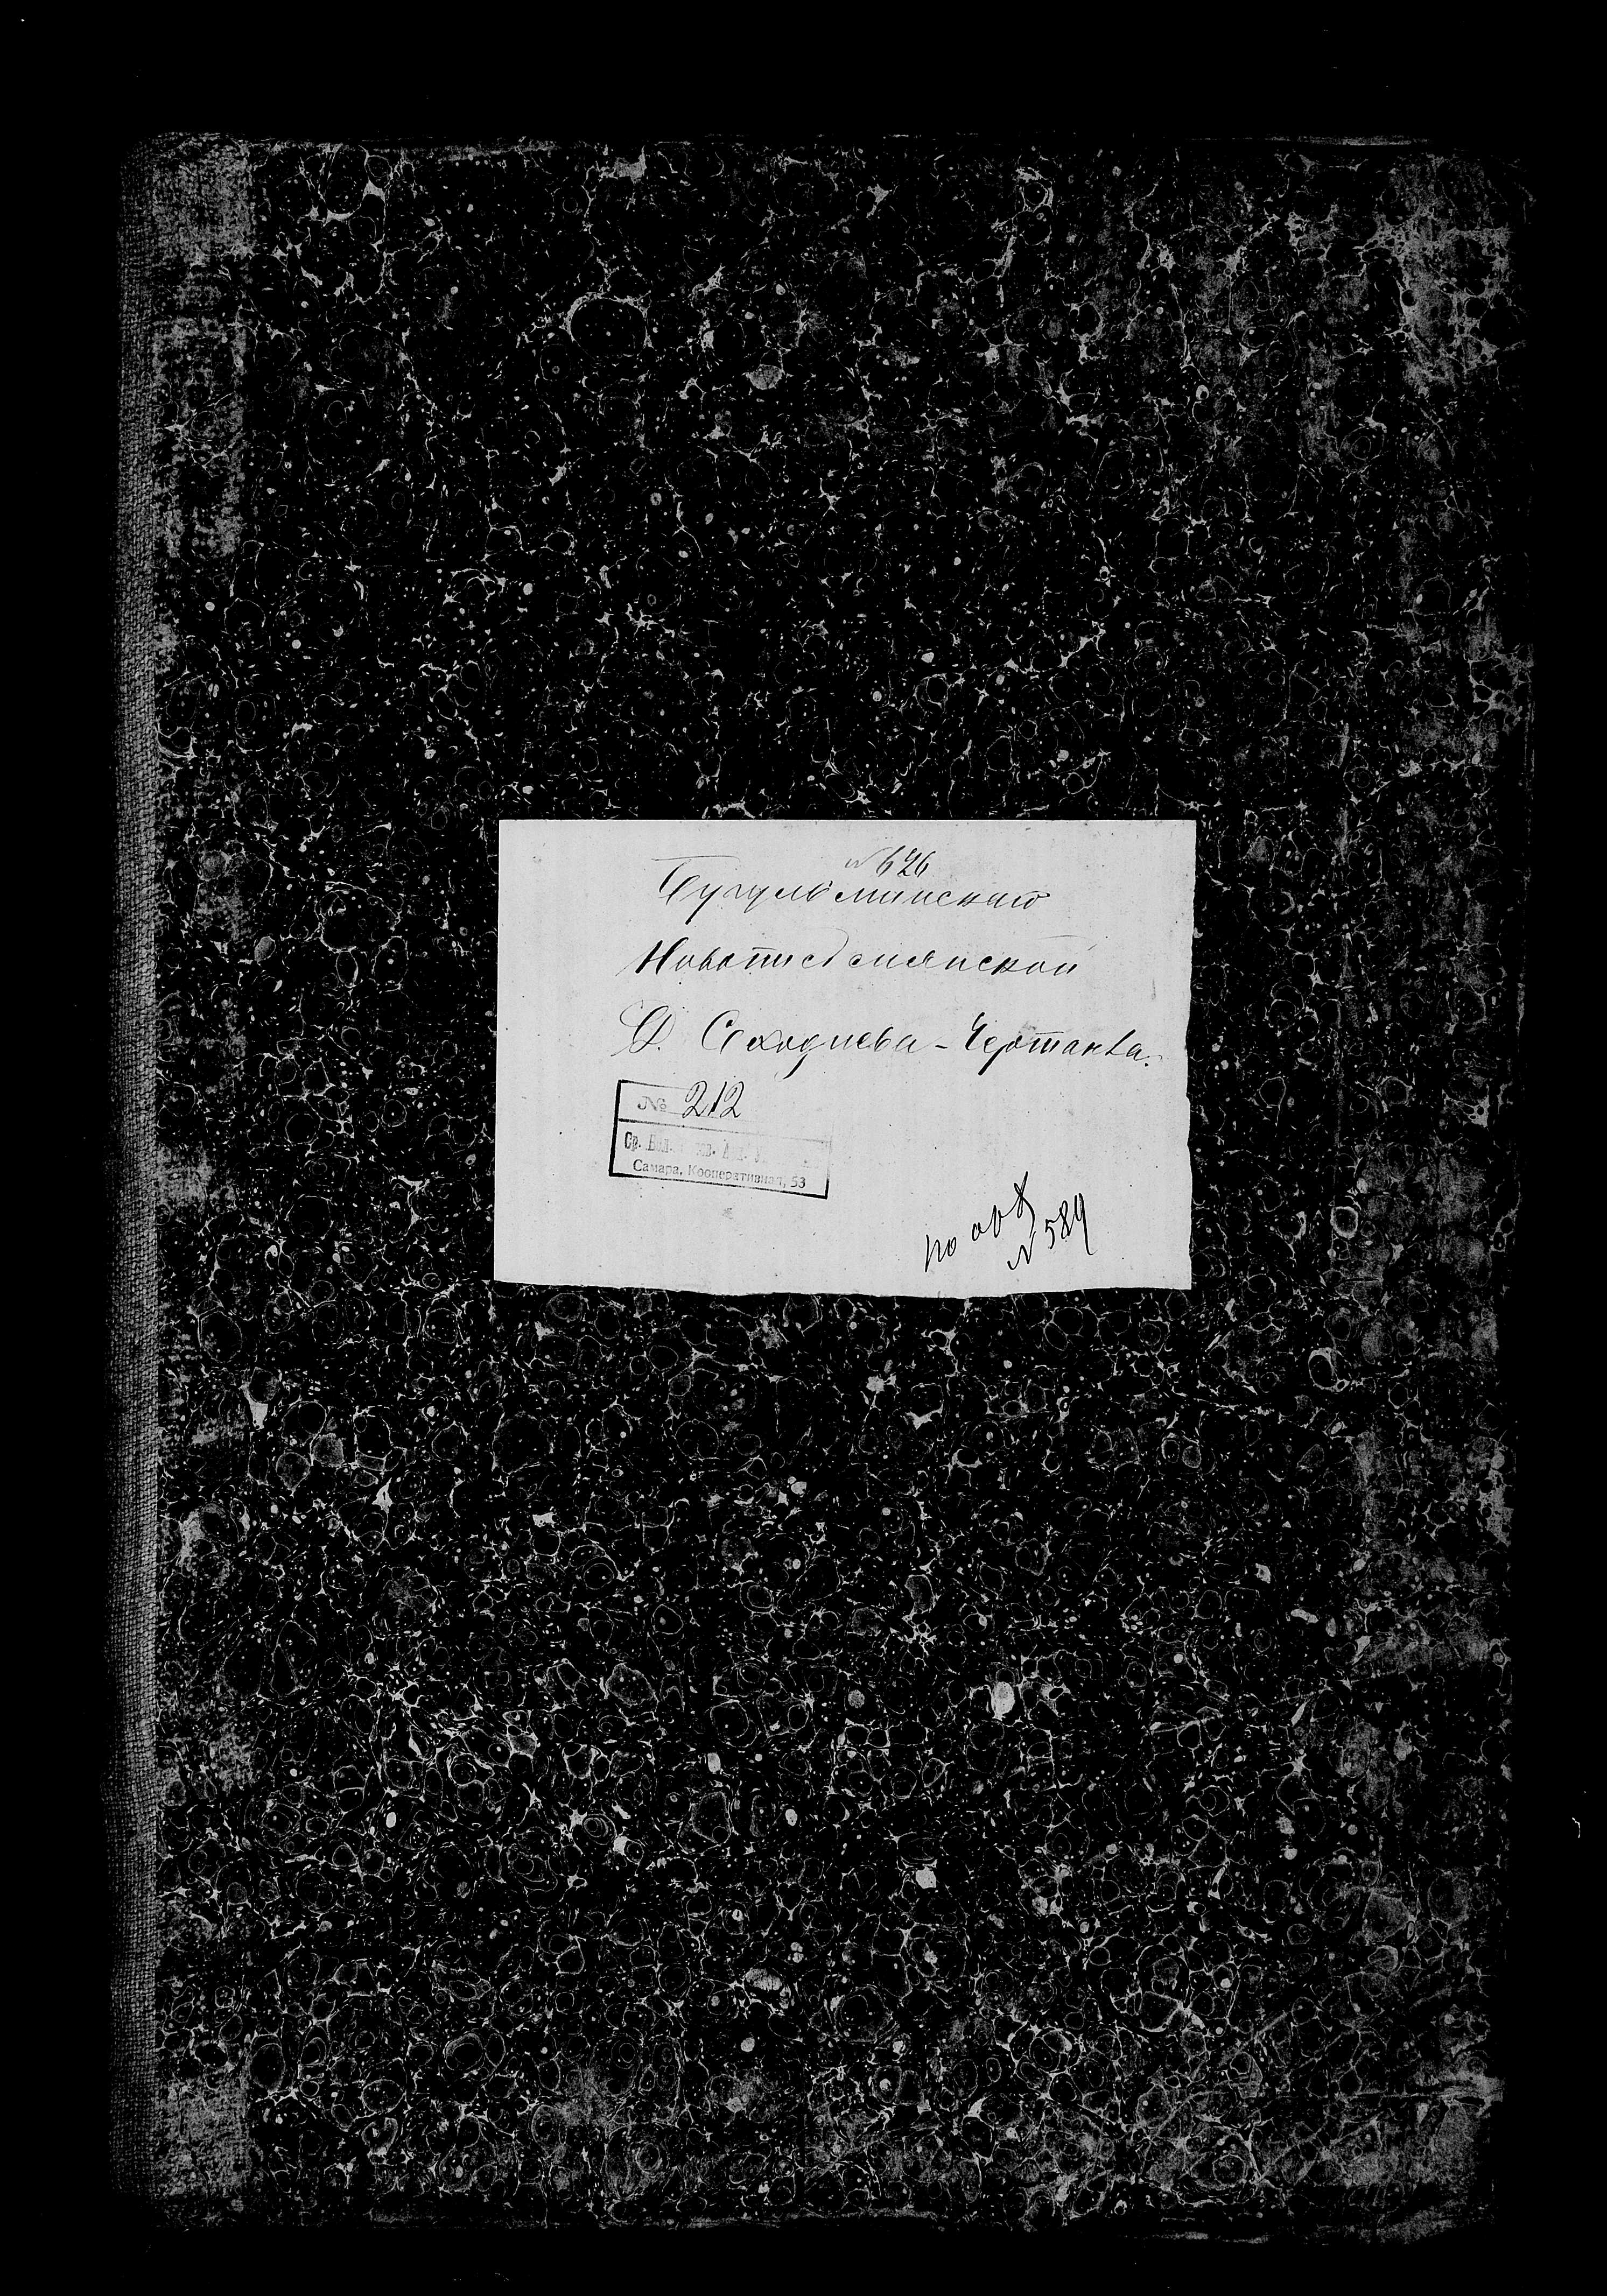 № 626
Бугульминскаго
Новописьмянской
Д. Сходнева-Чертанка.
№ 212
Ср.
Самара, Кооперативная, 53
по
№ 589